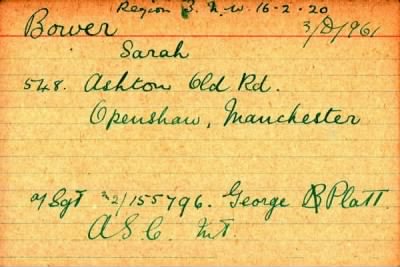 Region 3. N.W. 16-2-20
Bower 3/D/961
Sarah
548. Ashton Old Rd.
Openshaw, Manchester
a/Sgt M2/155796. George Platt.
A.S.C. M.T